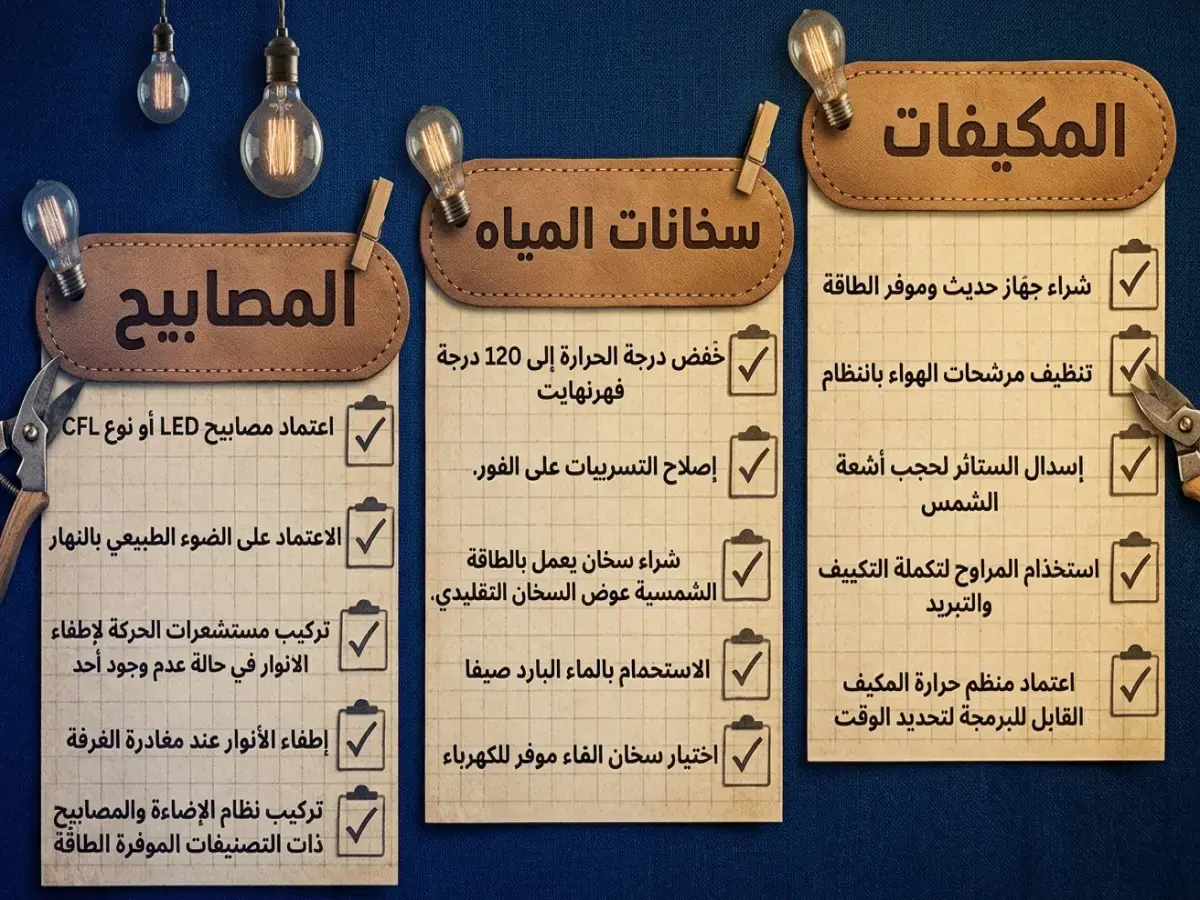 المكيفات
شراء جهَاز حديث وموفر الطاقة
تنظيف مرشحات الهواء باننظام
إسدال الستائر لحجب أشعة
الشمس
استخذام المراوح لتكملة التكييف
والتبريد
اعتماد منظم حرارة المكيف
القابل للبرمجة لتحديد الوقت
سخانات المياه
خَفض درجة الحرارة إلى 120 درجة
فهرنهايت
إصلاح التسربيات على الفور.
شراء سخان يعمل بالطاقة
الشمسية عوض السخان التقليدي.
الاستحمام بالماء البارد صيفا
اختيار سخان الفاء موفر للكهرباء
المصابيح
اعتماد مصابيح LED أو نوع CFL
الاعتماد على الضوء الطبيعي بالنهار
تركيب مستشعرات الحركة لإطفاء
الانوار في حالة عدم وجود أحد
إطفاء الأنوار عند مغادرة الغرفة
تركيب نظام الإضاءة والمصابيح
ذات التصنيفات الموفرة الطاقة